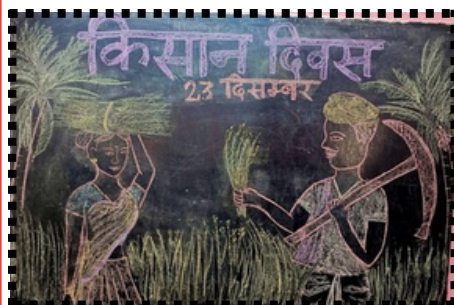 किसान दिवस
23 दिसम्बर